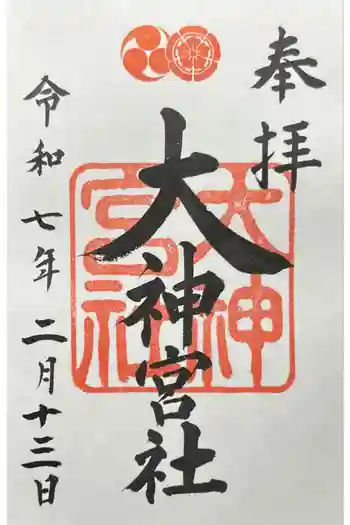 奉拝
大神宮社
大神宮社
令和七年二月十三日